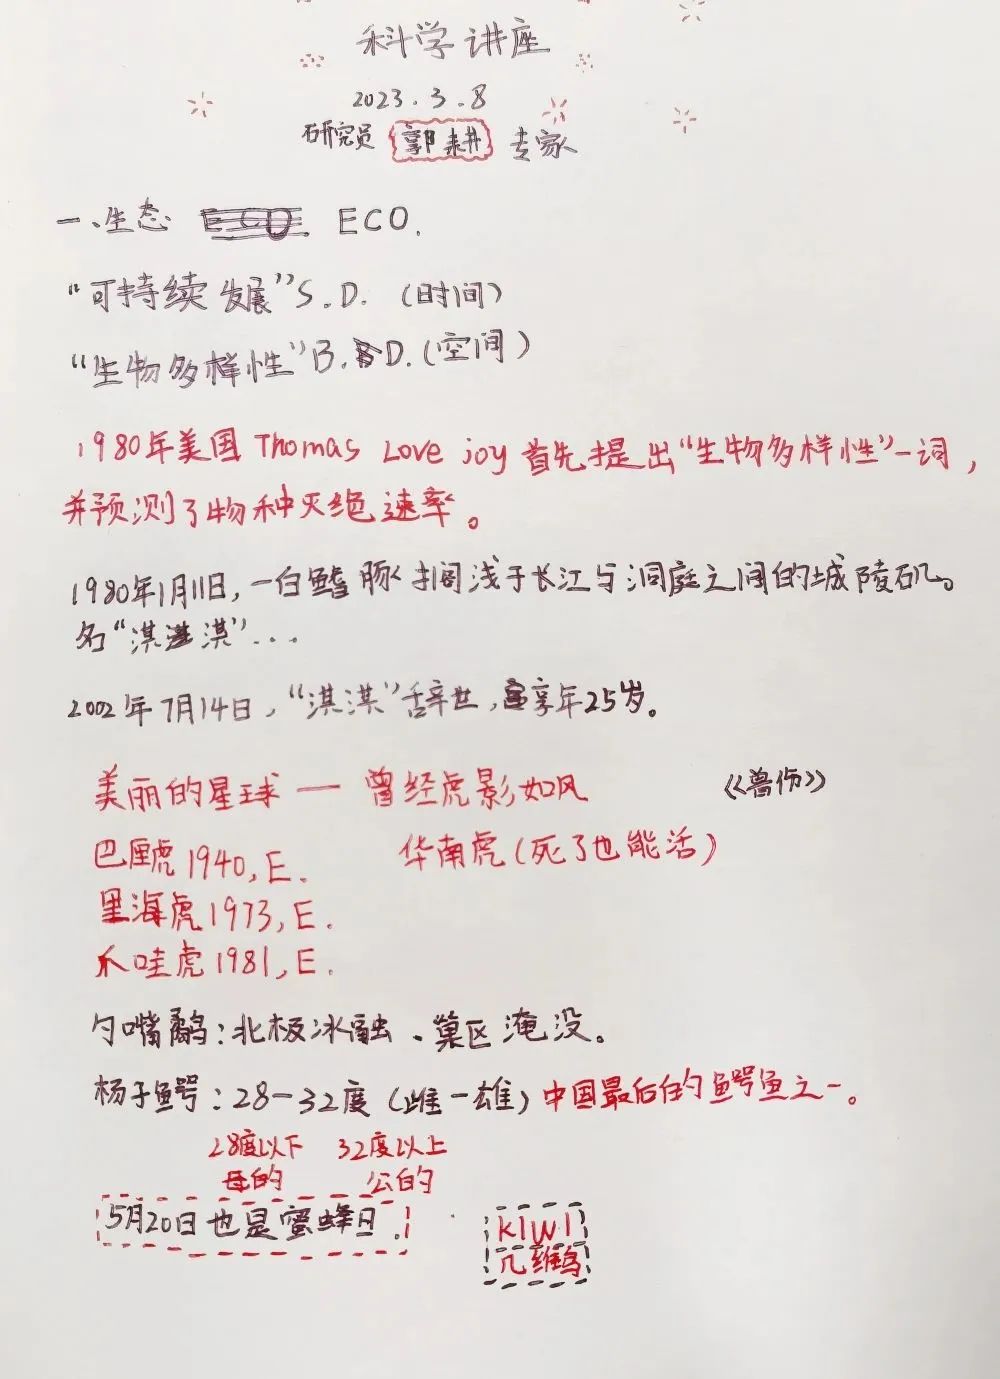 科学讲座
2023.3.8
研究员 郭耕 专家
一、生态 ECO.
“可持续发展”S.D.（时间）
“生物多样性”B.D.（空间）
1980年美国 Thomas Love joy 首先提出“生物多样性”一词，
并预测了物种灭绝速率。
1980年1月11日，一白鳍豚搁浅于长江与洞庭之间的城陵矶。
名“淇淇”...
2002年7月14日，“淇淇”辞世，享年25岁。
美丽的星球 — 曾经虎影如风 《兽伤》
巴厘虎1940，E. 华南虎（死了也能活）
里海虎1973，E.
爪哇虎1981，E.
勺嘴鹬：北极冰融、巢区淹没。
杨子鳄：28—32度（雌—雄）中国最后的鳄鱼之一。
28度以下 32度以上
母的 公的
5月20日也是蜜蜂日.
KIWI
几维鸟